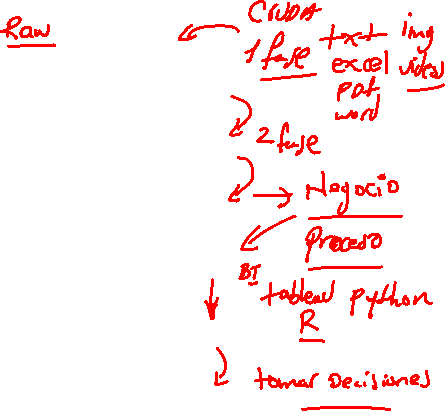 Raw
CRUDA
1 fase txt img
excel video
pdf
word
2 fase
Negocio
Proceso
BI
tableau python
R
tomar Decisiones